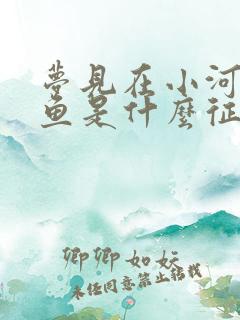 梦见在小河
鱼是什麼征
卿卿如妘
未经同意禁止转载